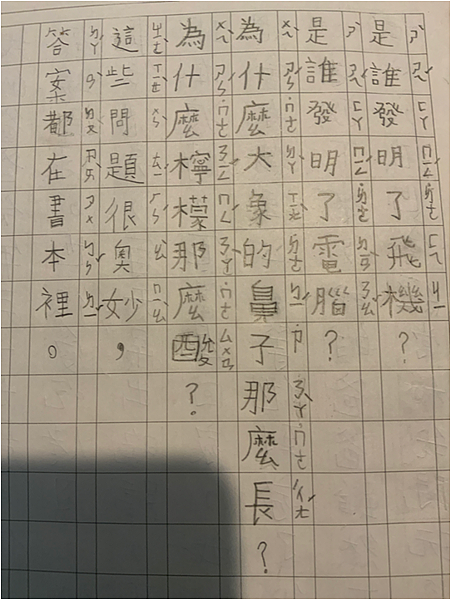 是誰發明了飛機?
是誰發明了電腦?
為什麼大象的鼻子那麼長?
為什麼檸檬那麼酸?
這些問題很奧妙,
答案都在書本裡。